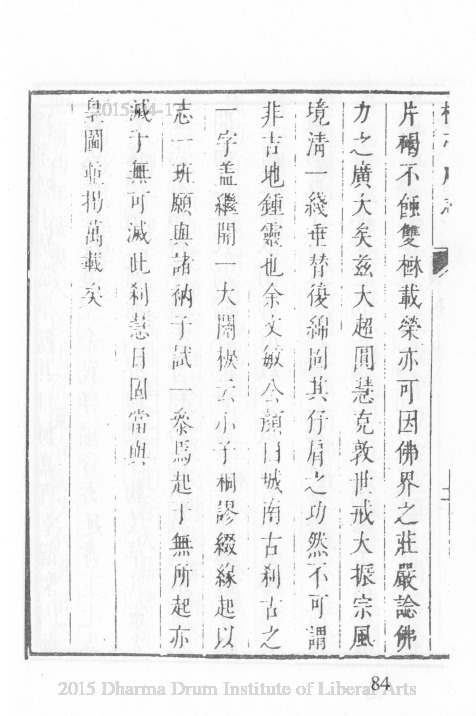 片褐不蝕雙樹載榮亦可因佛界之莊嚴諗佛
力之廣大矣茲大超圓慧克敦世戒大振宗風
境清一綫垂替後綿圖其仔肩之功然不可謂
非吉地鍾靈也余文敏公顏曰城南古刹古之
一字盖繼開一大關棙云小子桐謬綴緣起以
志一班願與諸衲子試叅焉起于無所起亦
滅于無可滅此刹慧日固當與
皇圖並揚萬載矣
84
2015 Dharma Drum Institute of Liberal Arts